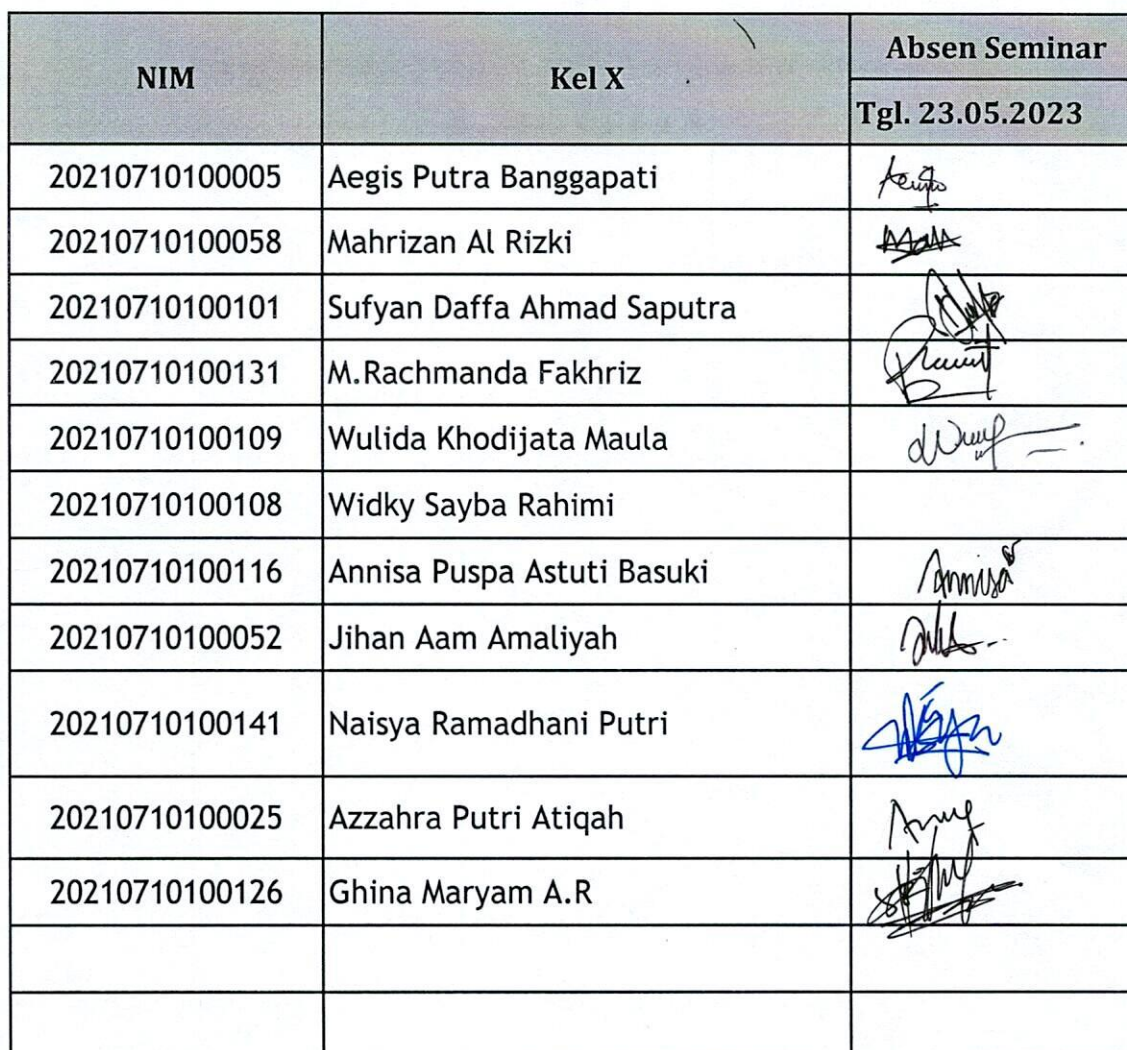 NIM Kel X Absen Seminar
Tgl. 23.05.2023
20210710100005 Aegis Putra Banggapati
20210710100058 Mahrizan Al Rizki
20210710100101 Sufyan Daffa Ahmad Saputra
20210710100131 M.Rachmanda Fakhriz
20210710100109 Wulida Khodijata Maula
20210710100108 Widky Sayba Rahimi
20210710100116 Annisa Puspa Astuti Basuki Annisa
20210710100052 Jihan Aam Amaliyah
20210710100141 Naisya Ramadhani Putri
20210710100025 Azzahra Putri Atiqah
20210710100126 Ghina Maryam A.R